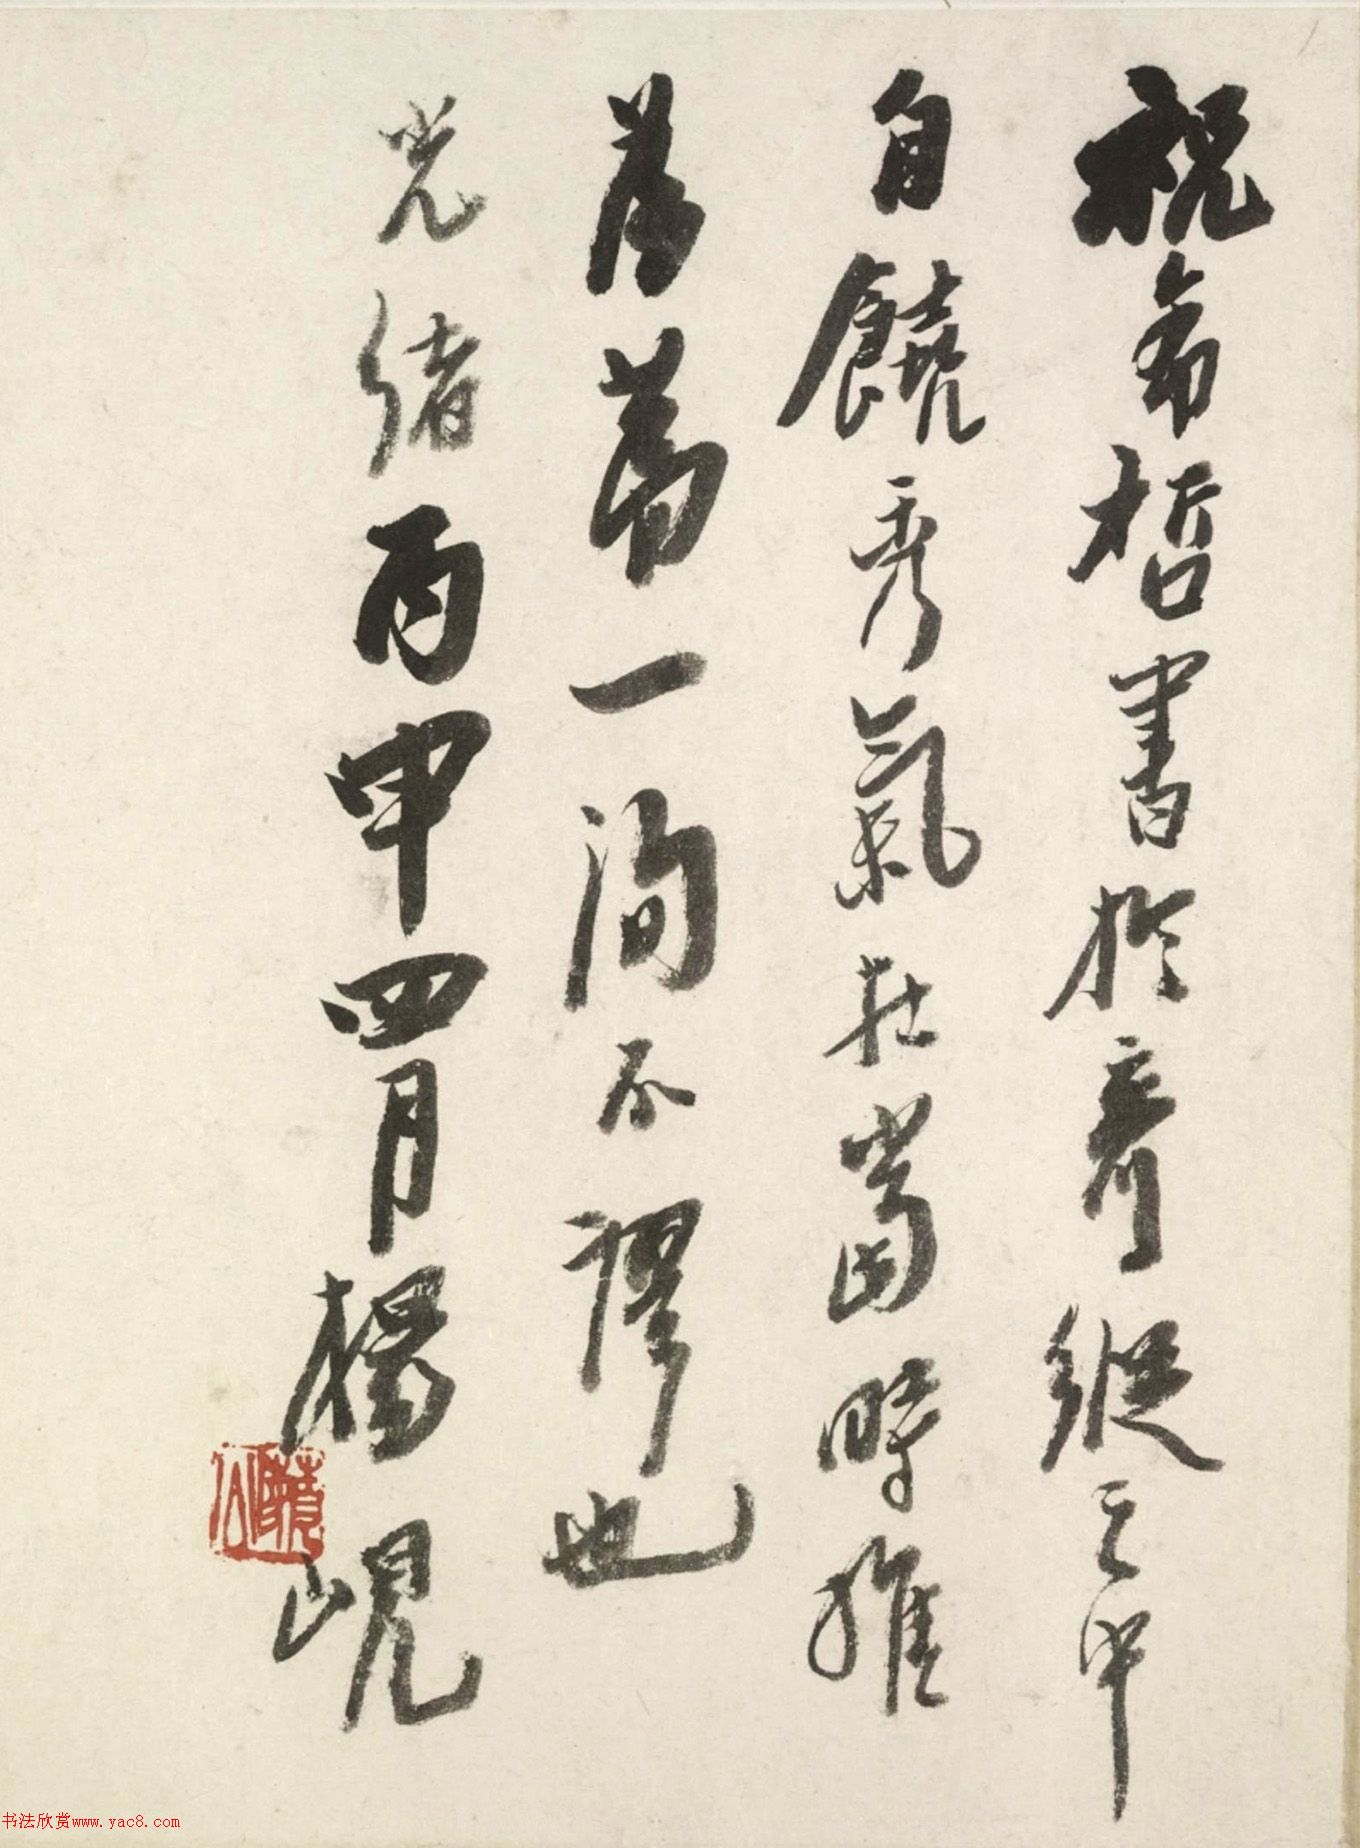 祝希哲書於奇縱之中
自饒秀氣在當時推
為第一洵不謬也
光緒丙申四月楊峴
藐翁
书法欣赏www.yac8.com